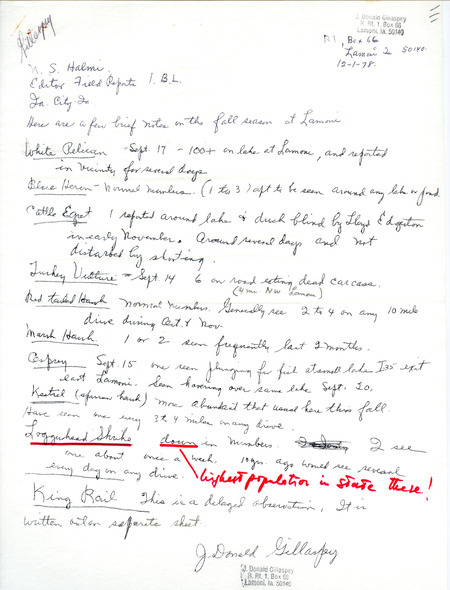 Gillaspey
J. Donald Gillaspey
R. Rt. 1, Box 66
Lamoni, Ia. 50140
R 1, Box 66
Lamoni Ia 50140
12-1-78.
N. S. Halmi
Editor Field Reports I.B.L.
Ia. City Ia.
Here are a few brief notes on the fall season at Lamoni
White Pelican - Sept. 17 - 100+ on lake at Lamoni, and reported
in vicinity for several days
Blue Heron - Normal numbers. (1 to 3) apt to be seen around any lake or pond
Cattle Egret 1 reported around lake & duck blind by Lloyd Edgerton
in early November. Around several days and not
disturbed by shooting.
Turkey Vulture - Sept. 14 6 on road eating dead carcase.
(4 mi NW Lamoni)
Red tailed Hawk Normal numbers. Generally see 2 to 4 on any 10 mile
drive during Oct. & Nov.
Marsh Hawk. 1 or 2 seen frequently last 2 months.
Osprey Sept. 15 one seen plunging for fish at small lake I35 exit
east Lamoni. Seen hovering over same lake Sept. 20.
Kestrel (sparrow hawk) more abundant that usual here this fall.
Have seen one every 3 to 4 miles on any drive.
Loggerhead Shrike down in numbers. I see
one about once a week. 10 yrs. ago would see several
every day on any drive.
highest population in state there!
King Rail This is a delayed observation, It is
written out on separate sheet.
J. Donald Gillaspey
J. Donald Gillaspey
R. Rt. 1, Box 66
Lamoni, Ia. 50140